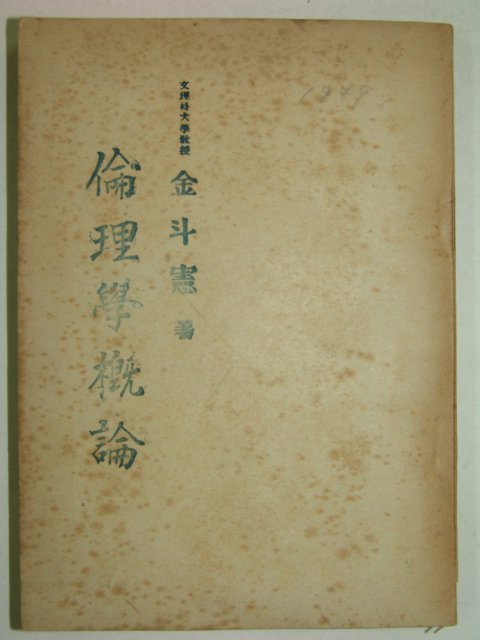 1949
文理科大學敎授 金斗憲 著
倫理學槪論